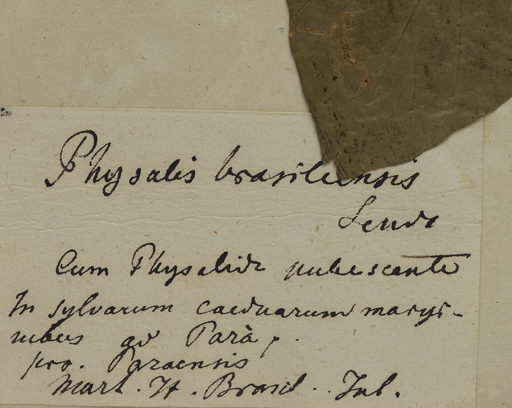 Physalis brasiliensis
Sendt
Cum Physalide pubescente
In sylvarum caeduarum margi-
nibus ad Parà,
pro. Paraensis
Mart. It. Brasil. Jul.